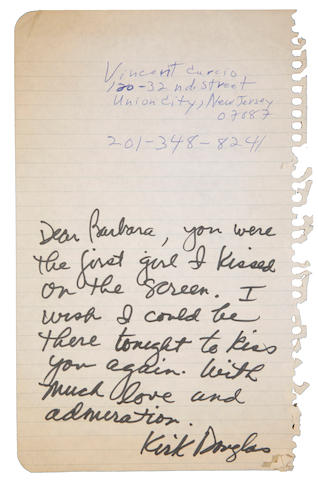 Vincent Curcio
120-32 nd Street
Union City, New Jersey
07087
201-348-8241
Dear Barbara, you were
the first girl I kissed
on the screen. I
wish I could be
there tonight to kiss
you again. With
much love and
admiration.
Kirk Douglas